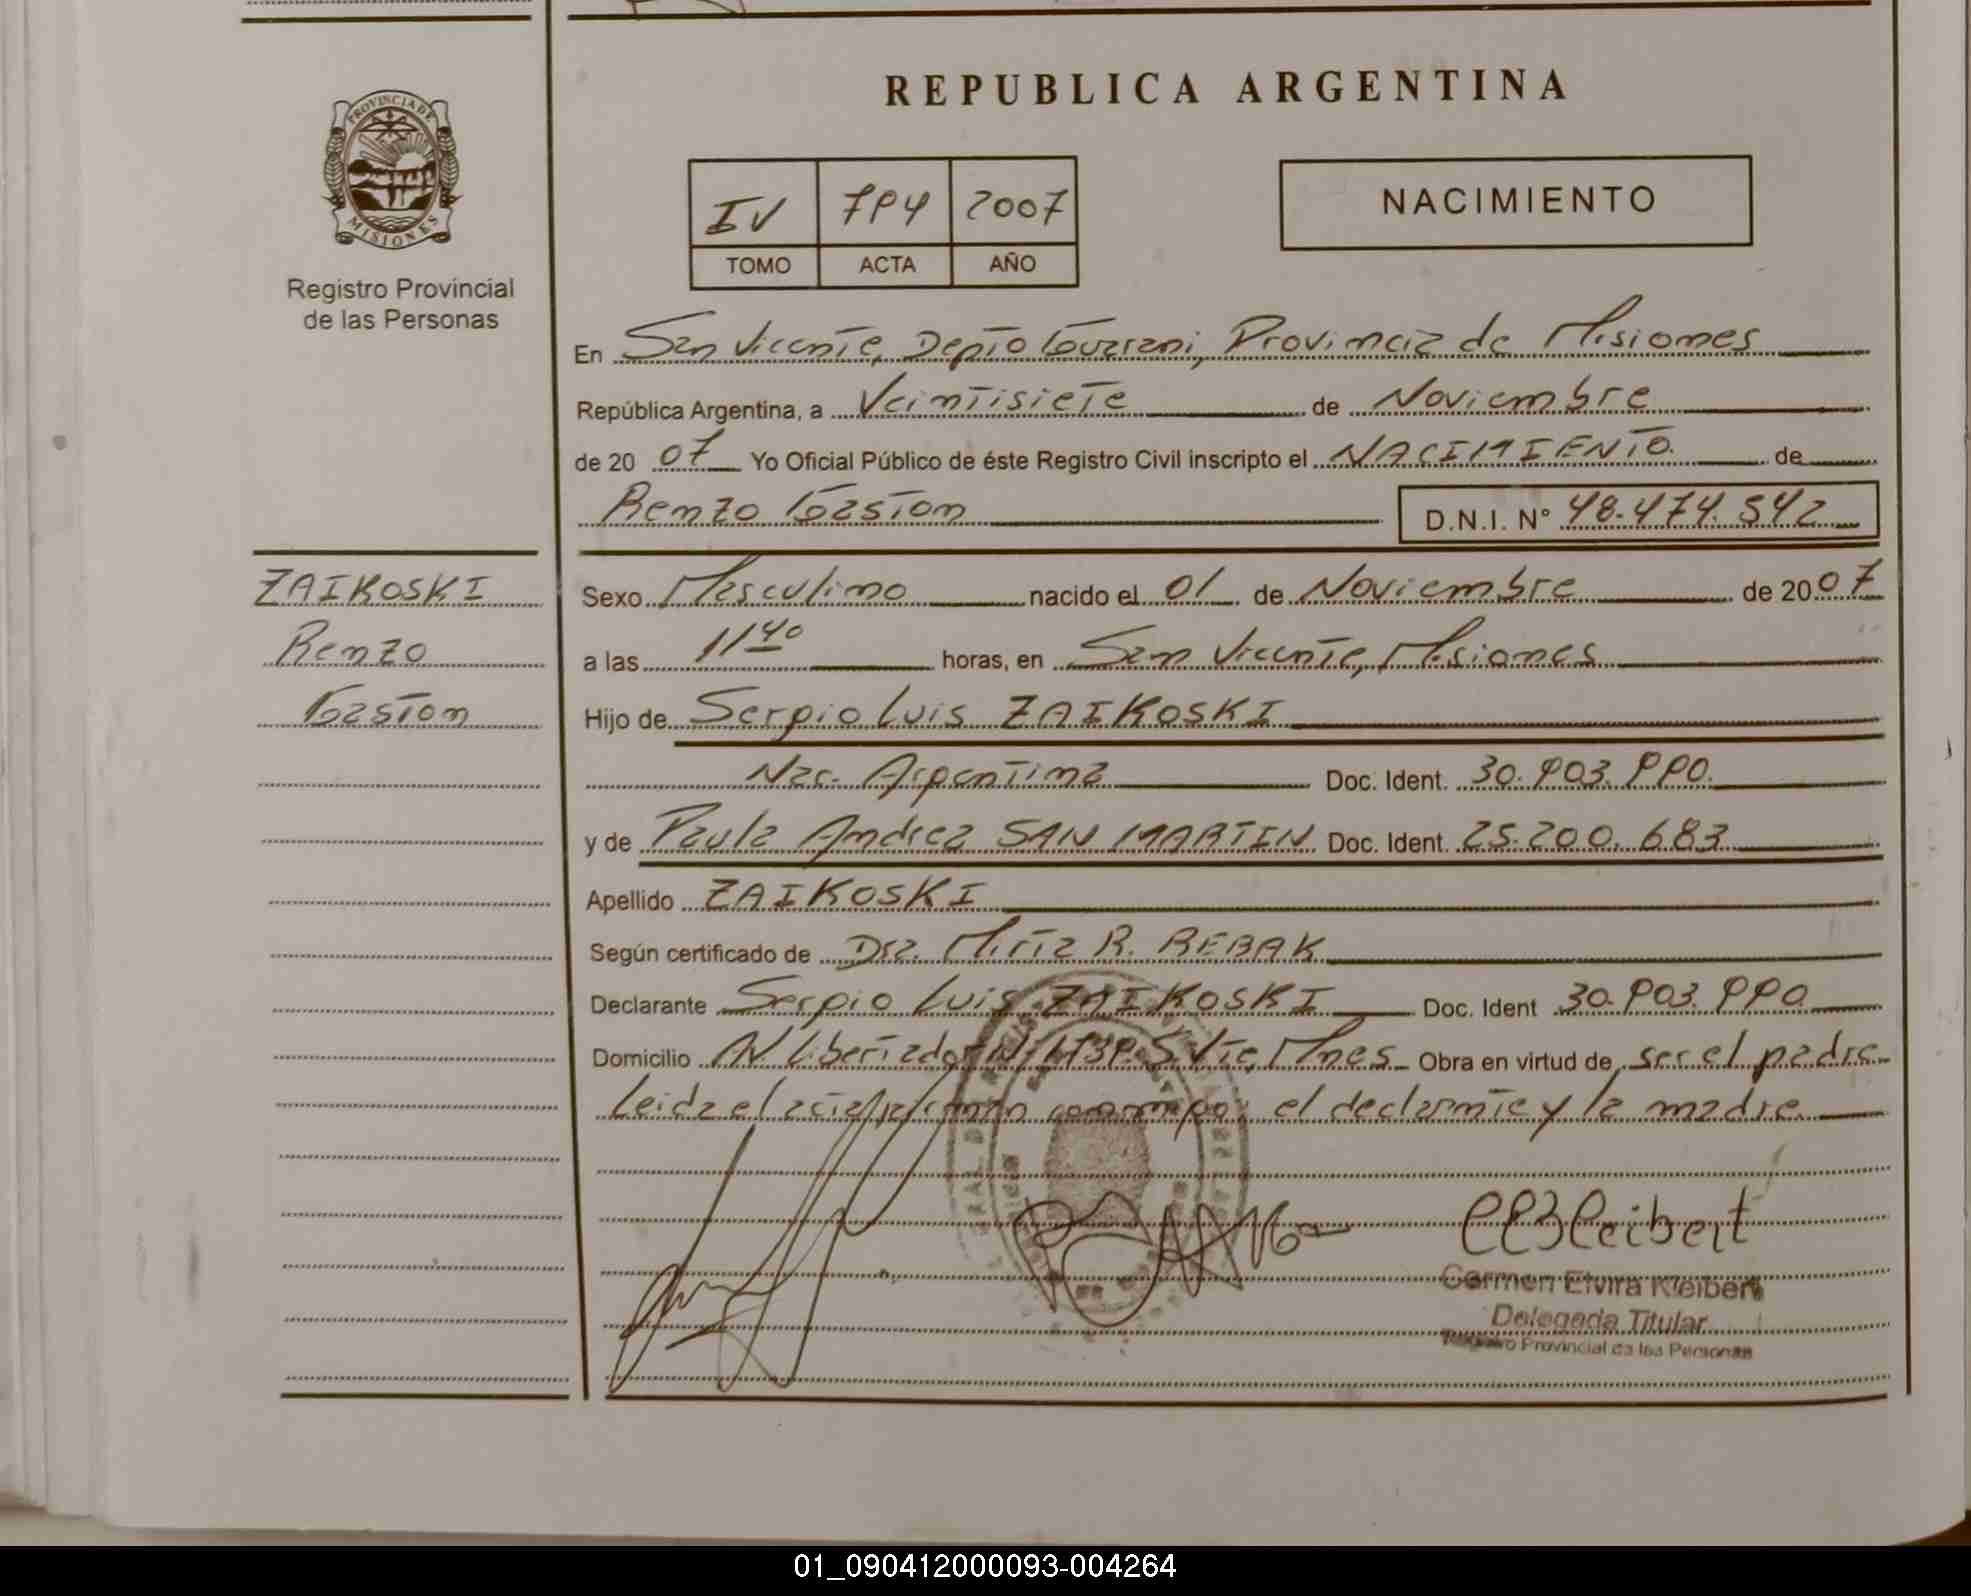 REPUBLICA ARGENTINA
PROVINCIA DE
MISIONES
Registro Provincial
de las Personas
IV 794 2007
TOMO ACTA AÑO
NACIMIENTO
En San Vicente, Depto Guarani, Provincia de Misiones
República Argentina, a Veintisiete de Noviembre
de 20 07 Yo Oficial Público de éste Registro Civil inscripto el NACIMIENTO. de
Renzo Gaston D.N.I. N° 48.474.542
ZAIKOSKI
Renzo
Gaston
Sexo Masculino nacido el 01 de Noviembre de 20 07
a las 11 40 horas, en San Vicente, Misiones
Hijo de Sergio Luis ZAIKOSKI
Nac. Argentina Doc. Ident. 30.903.990.
y de Paula Andrea SAN MARTIN Doc. Ident. 25.200.683
Apellido ZAIKOSKI
Según certificado de Dra. Mirta R. REBAK
Declarante Sergio Luis ZAIKOSKI Doc. Ident 30.903.990
Domicilio AV. Libertador S. Vte, Mnes Obra en virtud de ser el padre
Leida el acta firman el declarante y la madre
CEKleibert
Carmen Elvira Kleibert
Delegada Titular
Registro Provincial de las Personas
01_090412000093-004264